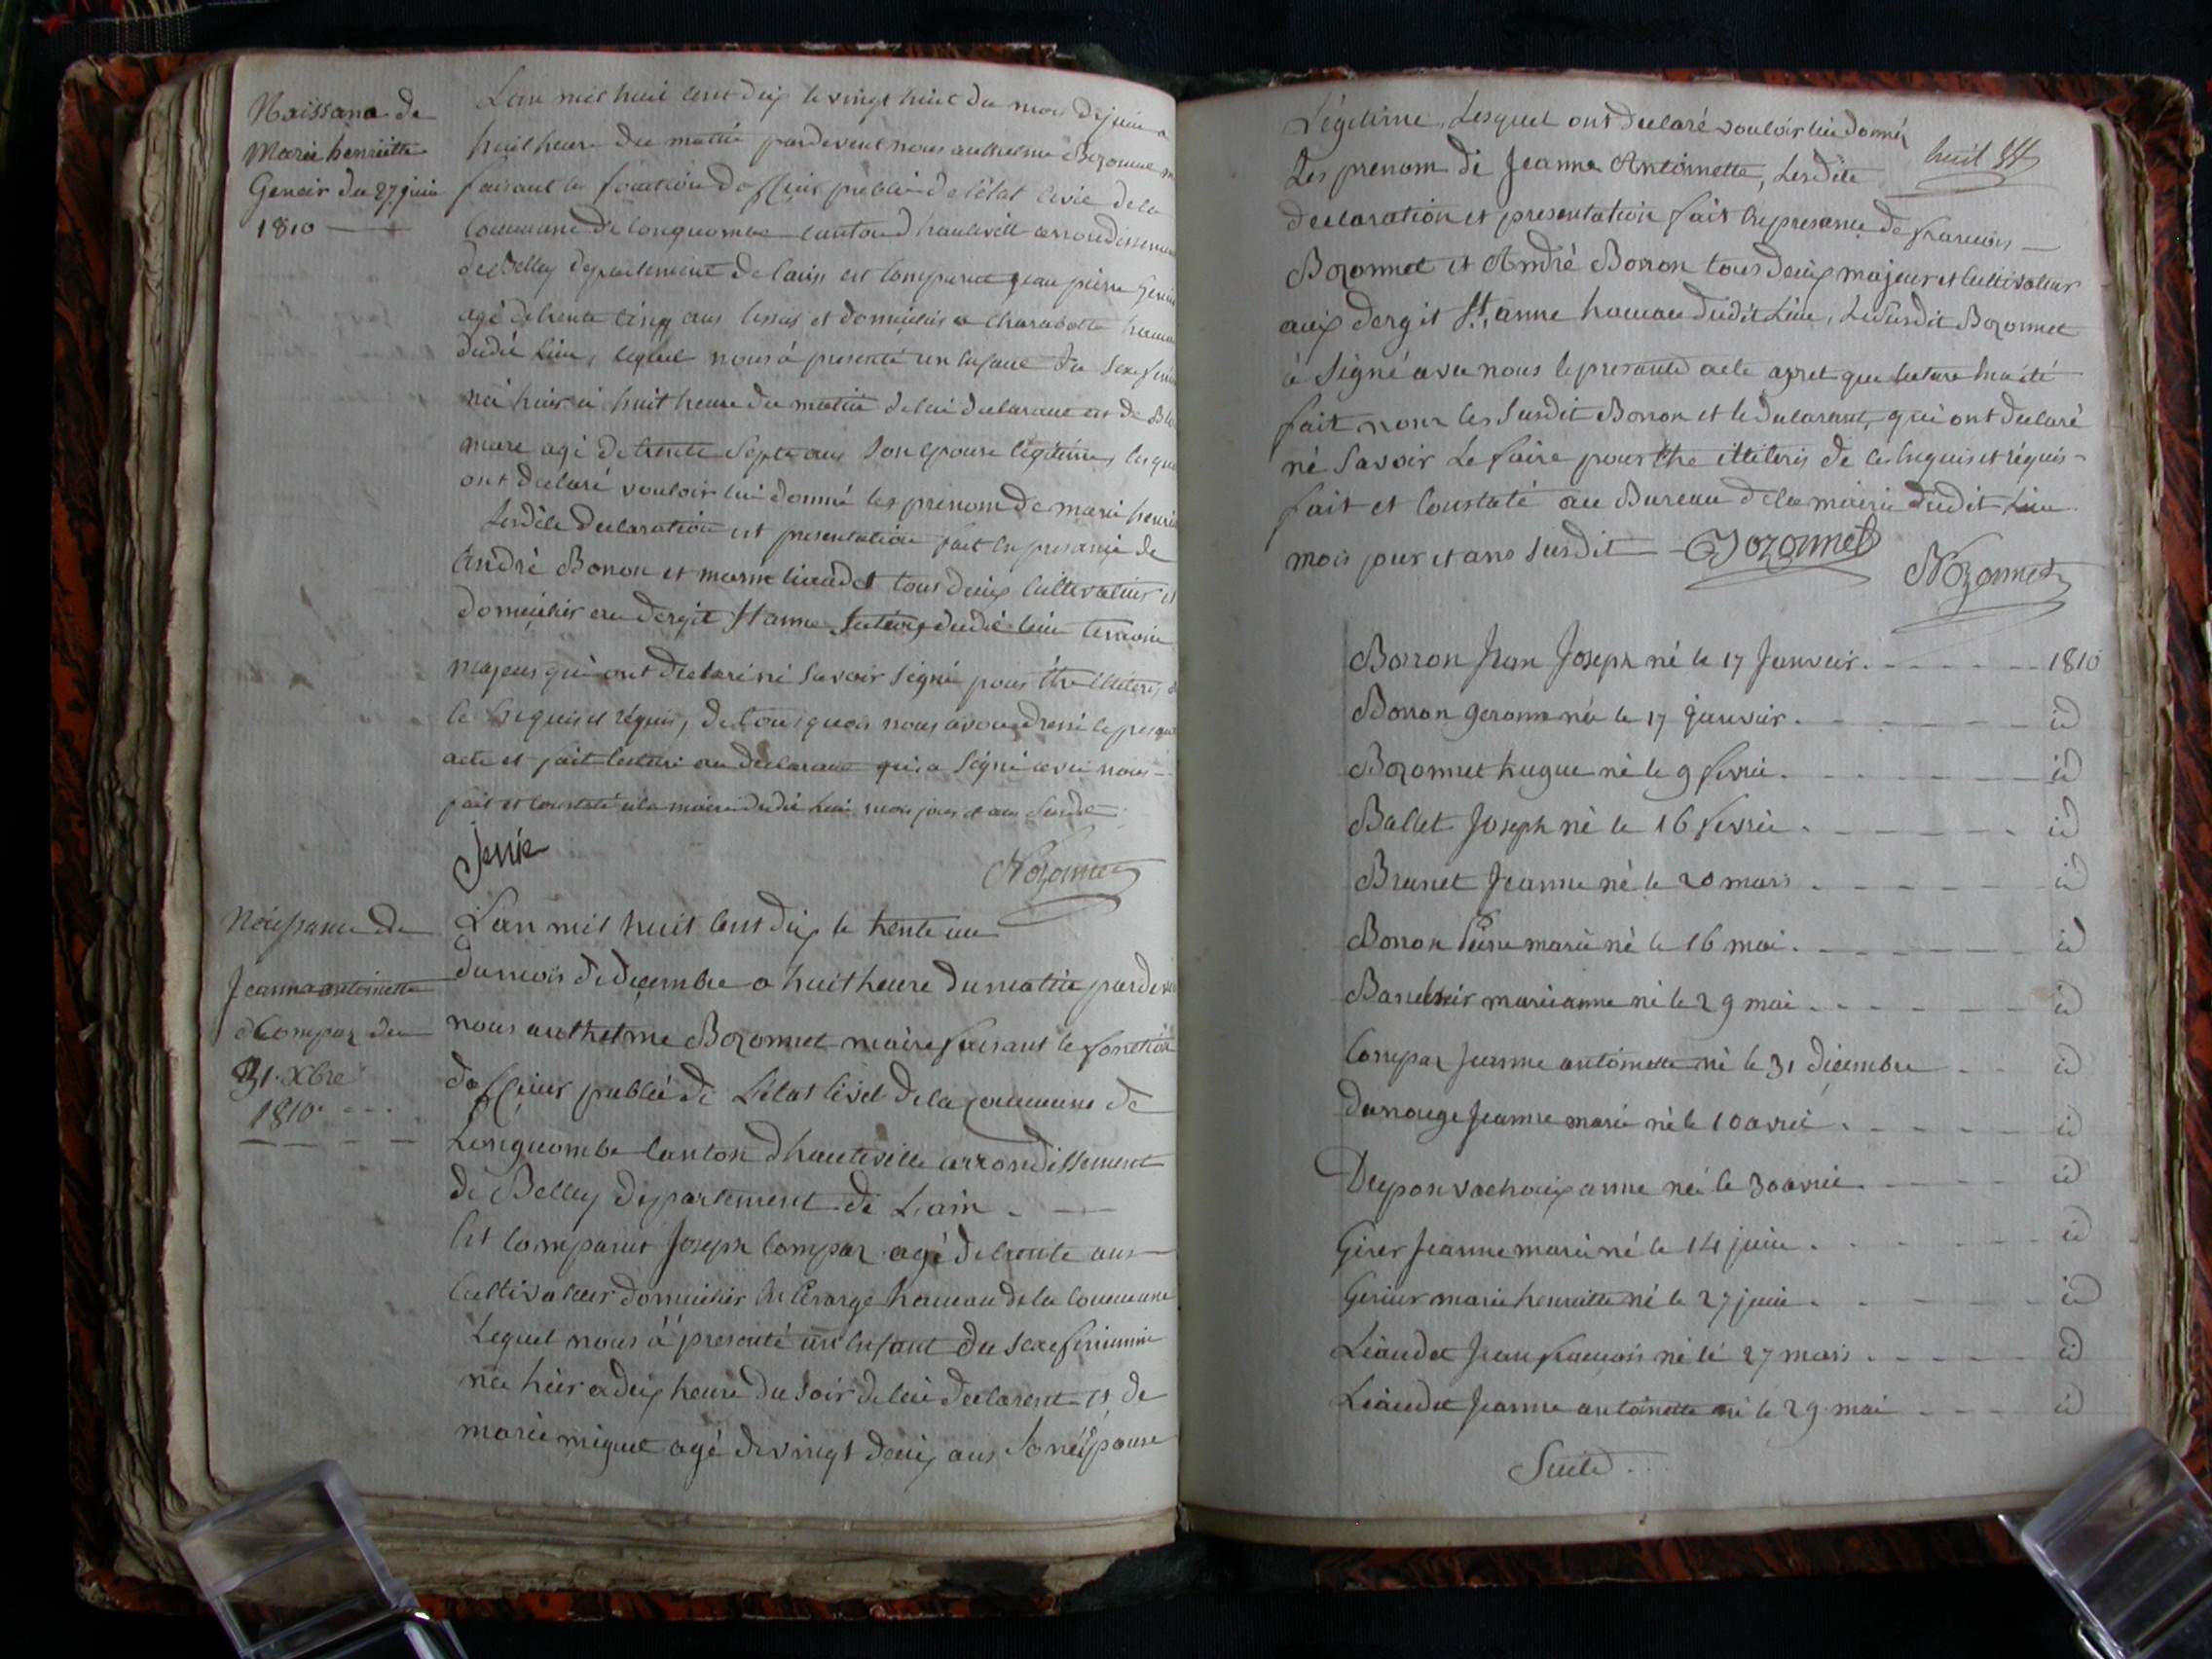 Naissance de
Marie henriette
Genoir du 27 juin
1810
L'an mil huit cent dix le vingt huit du mois de juin a
huit heure du matin pardevent nous anthelme Bozonnet
faisant le fonction d'officier public de l'état civil de la
commune de longecombe canton d'hauteville arrondissement
de Belley departement de l'ain est comparut jean pierre
agé de trente cinq ans et domicilié a Charabotte
dudit lieu, lequel nous à presenté un enfant du sexe
née hier a huit heure du matin de lui declarant et de
mare agé de trente sept ans son epouse légitime, lesquel
ont declaré vouloir lui donné les prenom de marie
Lesdite declaration et presentation fait en presance de
André Borron et liaudet tous deux cultivateur et
domicilier au dergit St anne dudit lieu temoin
majeur qui ont declaré ne savoir signé pour être illiteris de
ce enquis et réquis, de tout quoi nous avons dressé le presant
acte et fait lecture au declarant qui a signé avec nous
fait et constaté a la mairie dudit lieu mois jour et ans susdit
Jenie
Bozonnet
Naissance de
Jeanne antoinette
Compar du
31. Xbre
1810
L'an mil huit cent dix le trente un
du mois de decembre a huit heure du matin pardevant
nous anthelme Bozonnet maire faisant le fonction
d'officier public de L'etat civil de la commune de
Longecombe canton d'hauteville arrondissement
de Belley departement de L'ain
Est comparut Joseph Compar agé de trente ans
cultivateur domicilier en hameau de la commune
Lequel nous à presenté un enfant du sexe feminin
née hier a dix heure du soir de lui declarent et de
marie miguet agé de vingt deux ans son épouse
Légitime, Lesquel ont declaré vouloir lui donné
huit
Les prenom de Jeanne Antoinette, Lesdite
declaration et presentation fait en presence de francois
Bozonnet et André Borron tous deux majeur et cultivateur
aux dergit St anne hameau dudit Lieu, Le susdit Bozonnet
à signé avec nous le presante acte apret que lecture en a été
fait non les susdit Borron et le declarant, qui ont declaré
né savoir Le faire pour être illiteris de ce enquis et réquis
fait et constaté au Bureau de la mairie dudit Lieu
mois jour et ans susdit Bozonnet
Bozonnet
Borron Jean Joseph né le 17 Janvier 1810
Borron gerome née le 17 janvier id
Bozonnet hugue né le 9 fevrie id
Ballet Joseph né le 16 fevrie id
Brunet Jeanne né le 20 mars id
Borron Pierre marie né le 16 mai id
marianne né le 29 mai id
Compar Jeanne antoinette né le 31 décembre id
Jeanne marie né le 10 avril id
anne née le 30 avril id
Jeanne marie né le 14 juin id
marie henriette né le 27 juin id
Liaudet Jean francois né lé 27 mars id
Liaudet Jeanne antoinette né le 29 mai id
Suite